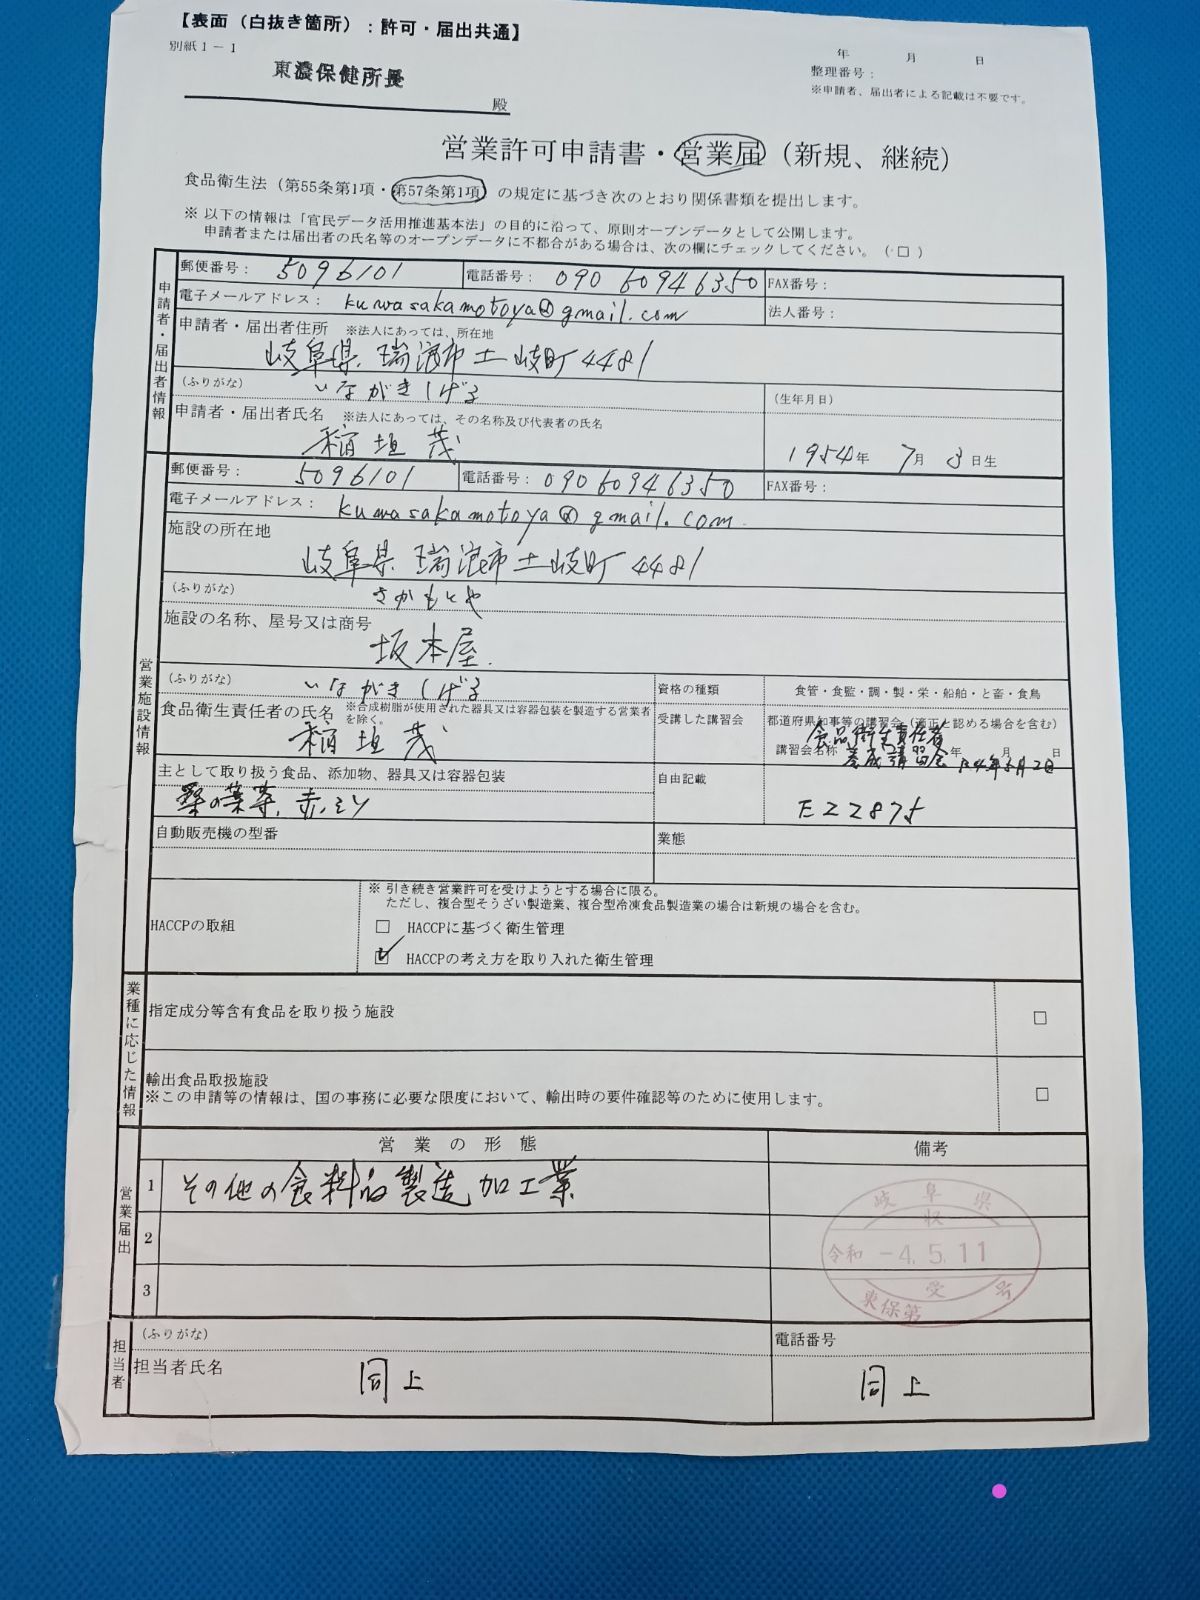 【表面（白抜き箇所）：許可・届出共通】
別紙１－１
年　月　日
整理番号：
※申請者、届出者による記載は不要です。
東濃保健所長
殿
営業許可申請書・営業届（新規、継続）
食品衛生法（第55条第1項・第57条第1項）の規定に基づき次のとおり関係書類を提出します。
※ 以下の情報は「官民データ活用推進基本法」の目的に沿って、原則オープンデータとして公開します。
申請者または届出者の氏名等のオープンデータに不都合がある場合は、次の欄にチェックしてください。（□）
申請者・届出者情報
郵便番号： 5096101 電話番号： 090 60946350 FAX番号：
電子メールアドレス： kuwasakamotoya@gmail.com 法人番号：
申請者・届出者住所 ※法人にあっては、所在地
岐阜県瑞浪市土岐町4481
（ふりがな） いながきしげる （生年月日）
申請者・届出者氏名 ※法人にあっては、その名称及び代表者の氏名
稲垣茂 1954年 7月 3日生
営業施設情報
郵便番号： 5096101 電話番号： 09060946350 FAX番号：
電子メールアドレス： kuwasakamotoya@gmail.com
施設の所在地
岐阜県瑞浪市土岐町4481
（ふりがな） さかもとや
施設の名称、屋号又は商号
坂本屋
（ふりがな） いながきしげる 資格の種類 食管・食監・調・製・栄・船舶・と畜・食鳥
食品衛生責任者の氏名 ※合成樹脂が使用された器具又は容器包装を製造する営業者を除く。
稲垣茂
受講した講習会 都道府県知事等の講習会（適正と認める場合を含む）
食品衛生責任者
講習会名称 養成講習会 年 月 日
主として取り扱う食品、添加物、器具又は容器包装 自由記載
桑の葉茶、赤シソ E22875
自動販売機の型番 業態
HACCPの取組
※ 引き続き営業許可を受けようとする場合に限る。
ただし、複合型そうざい製造業、複合型冷凍食品製造業の場合は新規の場合を含む。
□ HACCPに基づく衛生管理
☑ HACCPの考え方を取り入れた衛生管理
業種に応じた情報
指定成分等含有食品を取り扱う施設 □
輸出食品取扱施設
※この申請等の情報は、国の事務に必要な限度において、輸出時の要件確認等のために使用します。 □
営業届出
営業の形態 備考
1 その他の食料品製造加工業
2
3
岐阜県
収
令和 -4.5.11
受
東保第 号
担当者
（ふりがな） 電話番号
担当者氏名 同上 同上